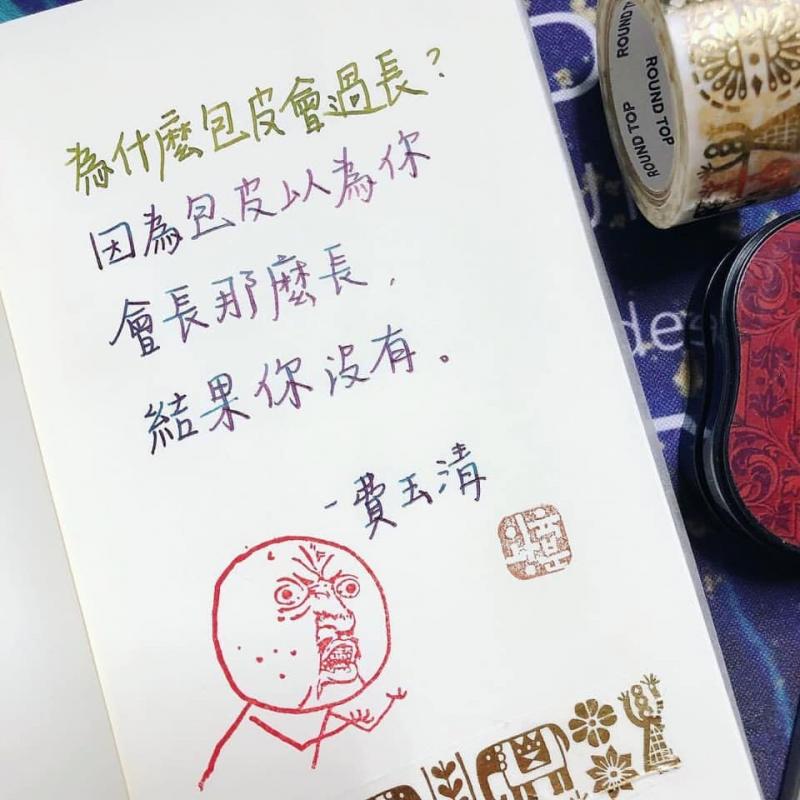 為什麼包皮會過長？
因為包皮以為你
會長那麼長，
結果你沒有。
-費玉清
ROUND TOP
ROUND TOP
ROUND TOP
des